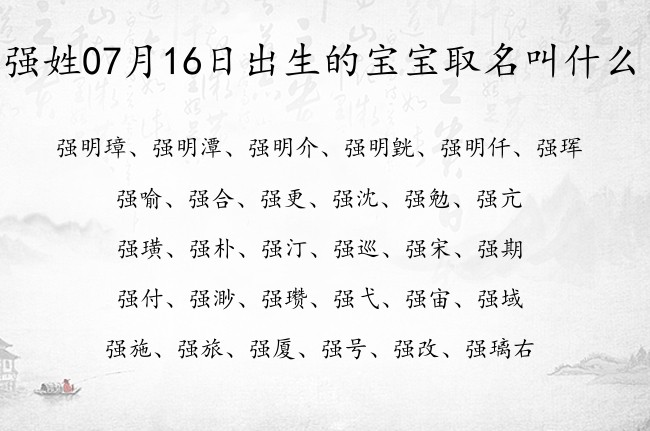 强姓07月16日出生的宝宝取名叫什么
强明璋、强明潭、强明介、强明皝、强明仟、强珲
强喻、强合、强更、强沈、强勉、强亢
强璜、强朴、强汀、强巡、强宋、强期
强付、强渺、强瓒、强弋、强宙、强域
强施、强旅、强厦、强号、强改、强璃右